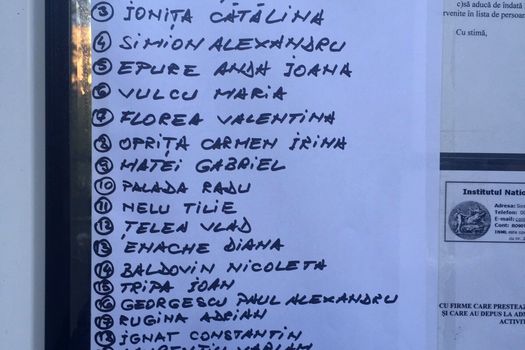 3 IONIȚA CĂTĂLINA
4 SIMION ALEXANDRU
5 EPURE ANDA IOANA
6 VULCU MARIA
7 FLOREA VALENTINA
8 OPRIȚA CARMEN IRINA
9 MATEI GABRIEL
10 PALADA RADU
11 NELU TILIE
12 ȚELEA VLAD
13 ENACHE DIANA
14 BALDOVIN NICOLETA
15 TRIPA IOAN
16 GEORGESCU PAUL ALEXANDRU
17 RUGINA ADRIAN
18 IGNAT CONSTANTIN
c)să aducă de îndată
în lista de persoan
Cu stimă,
Institutul Națio
Adresa:
Telefon:
E-mail:
Cont:
CU FIRME CARE PRESTEAZ
ȘI CARE AU DEPUS LA ADM
ACTIVIT